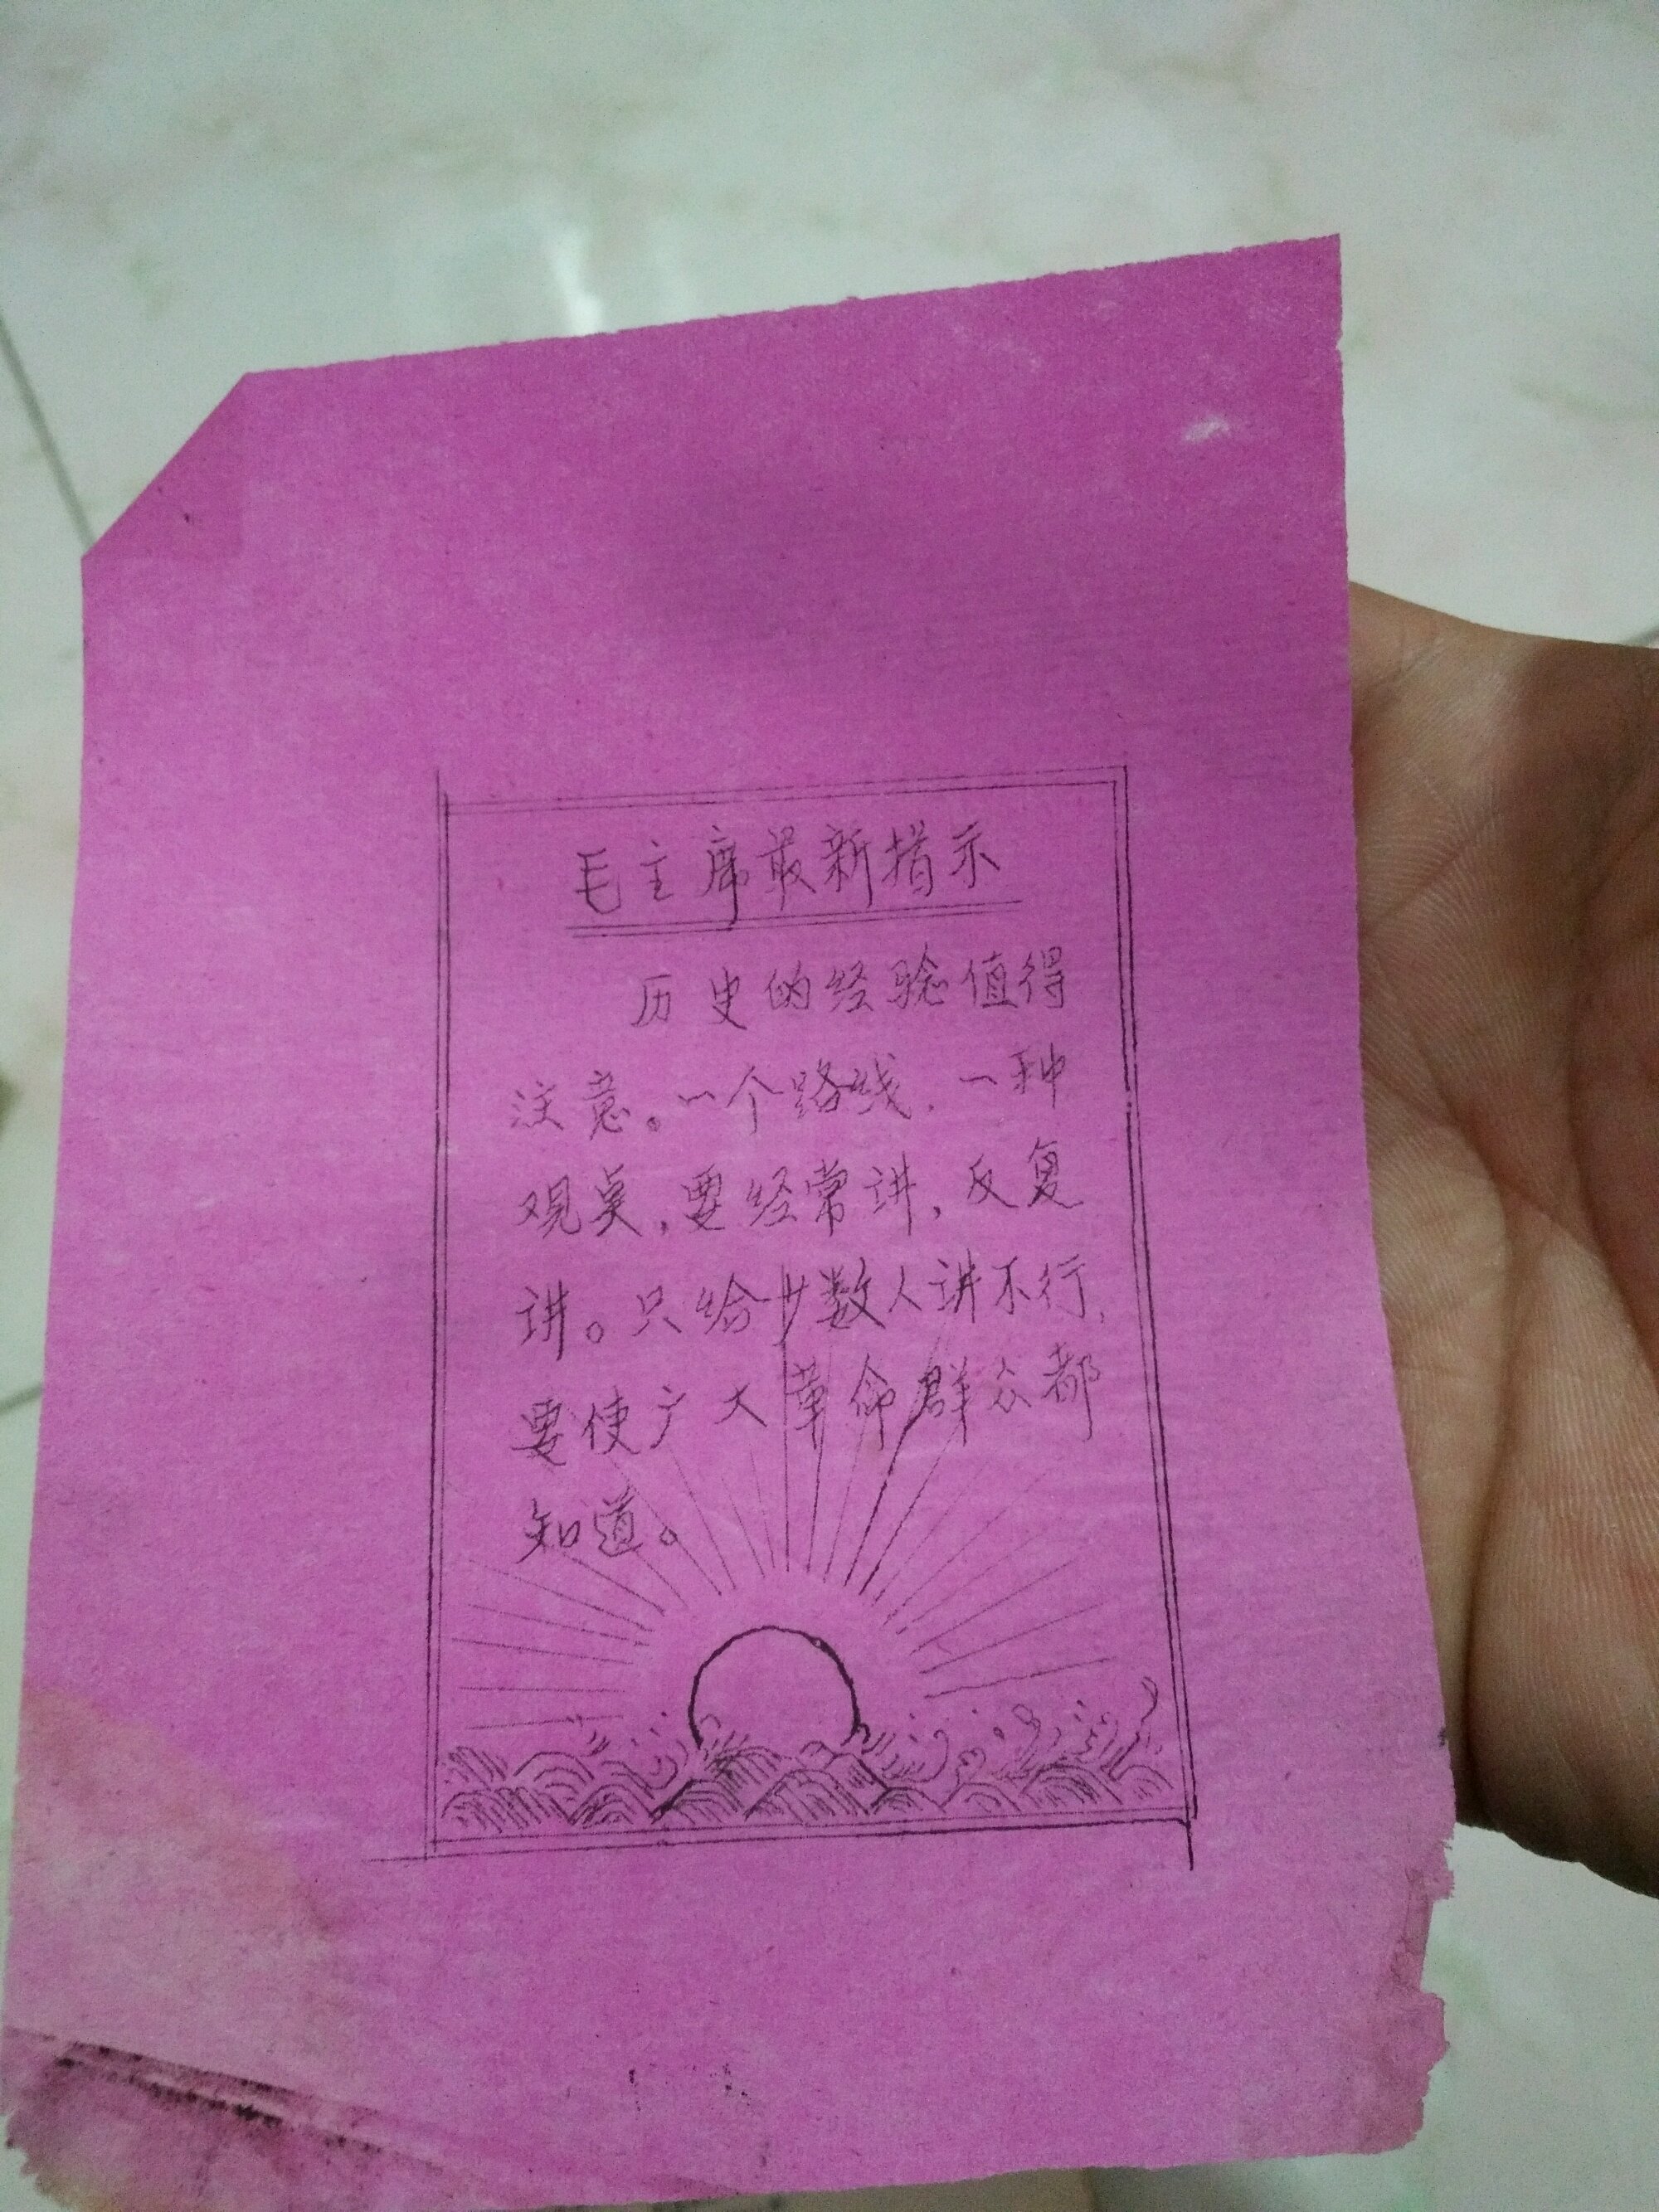 毛主席最新指示
历史的经验值得
注意。一个路线，一种
观点，要经常讲，反复
讲。只给少数人讲不行，
要使广大革命群众都
知道。